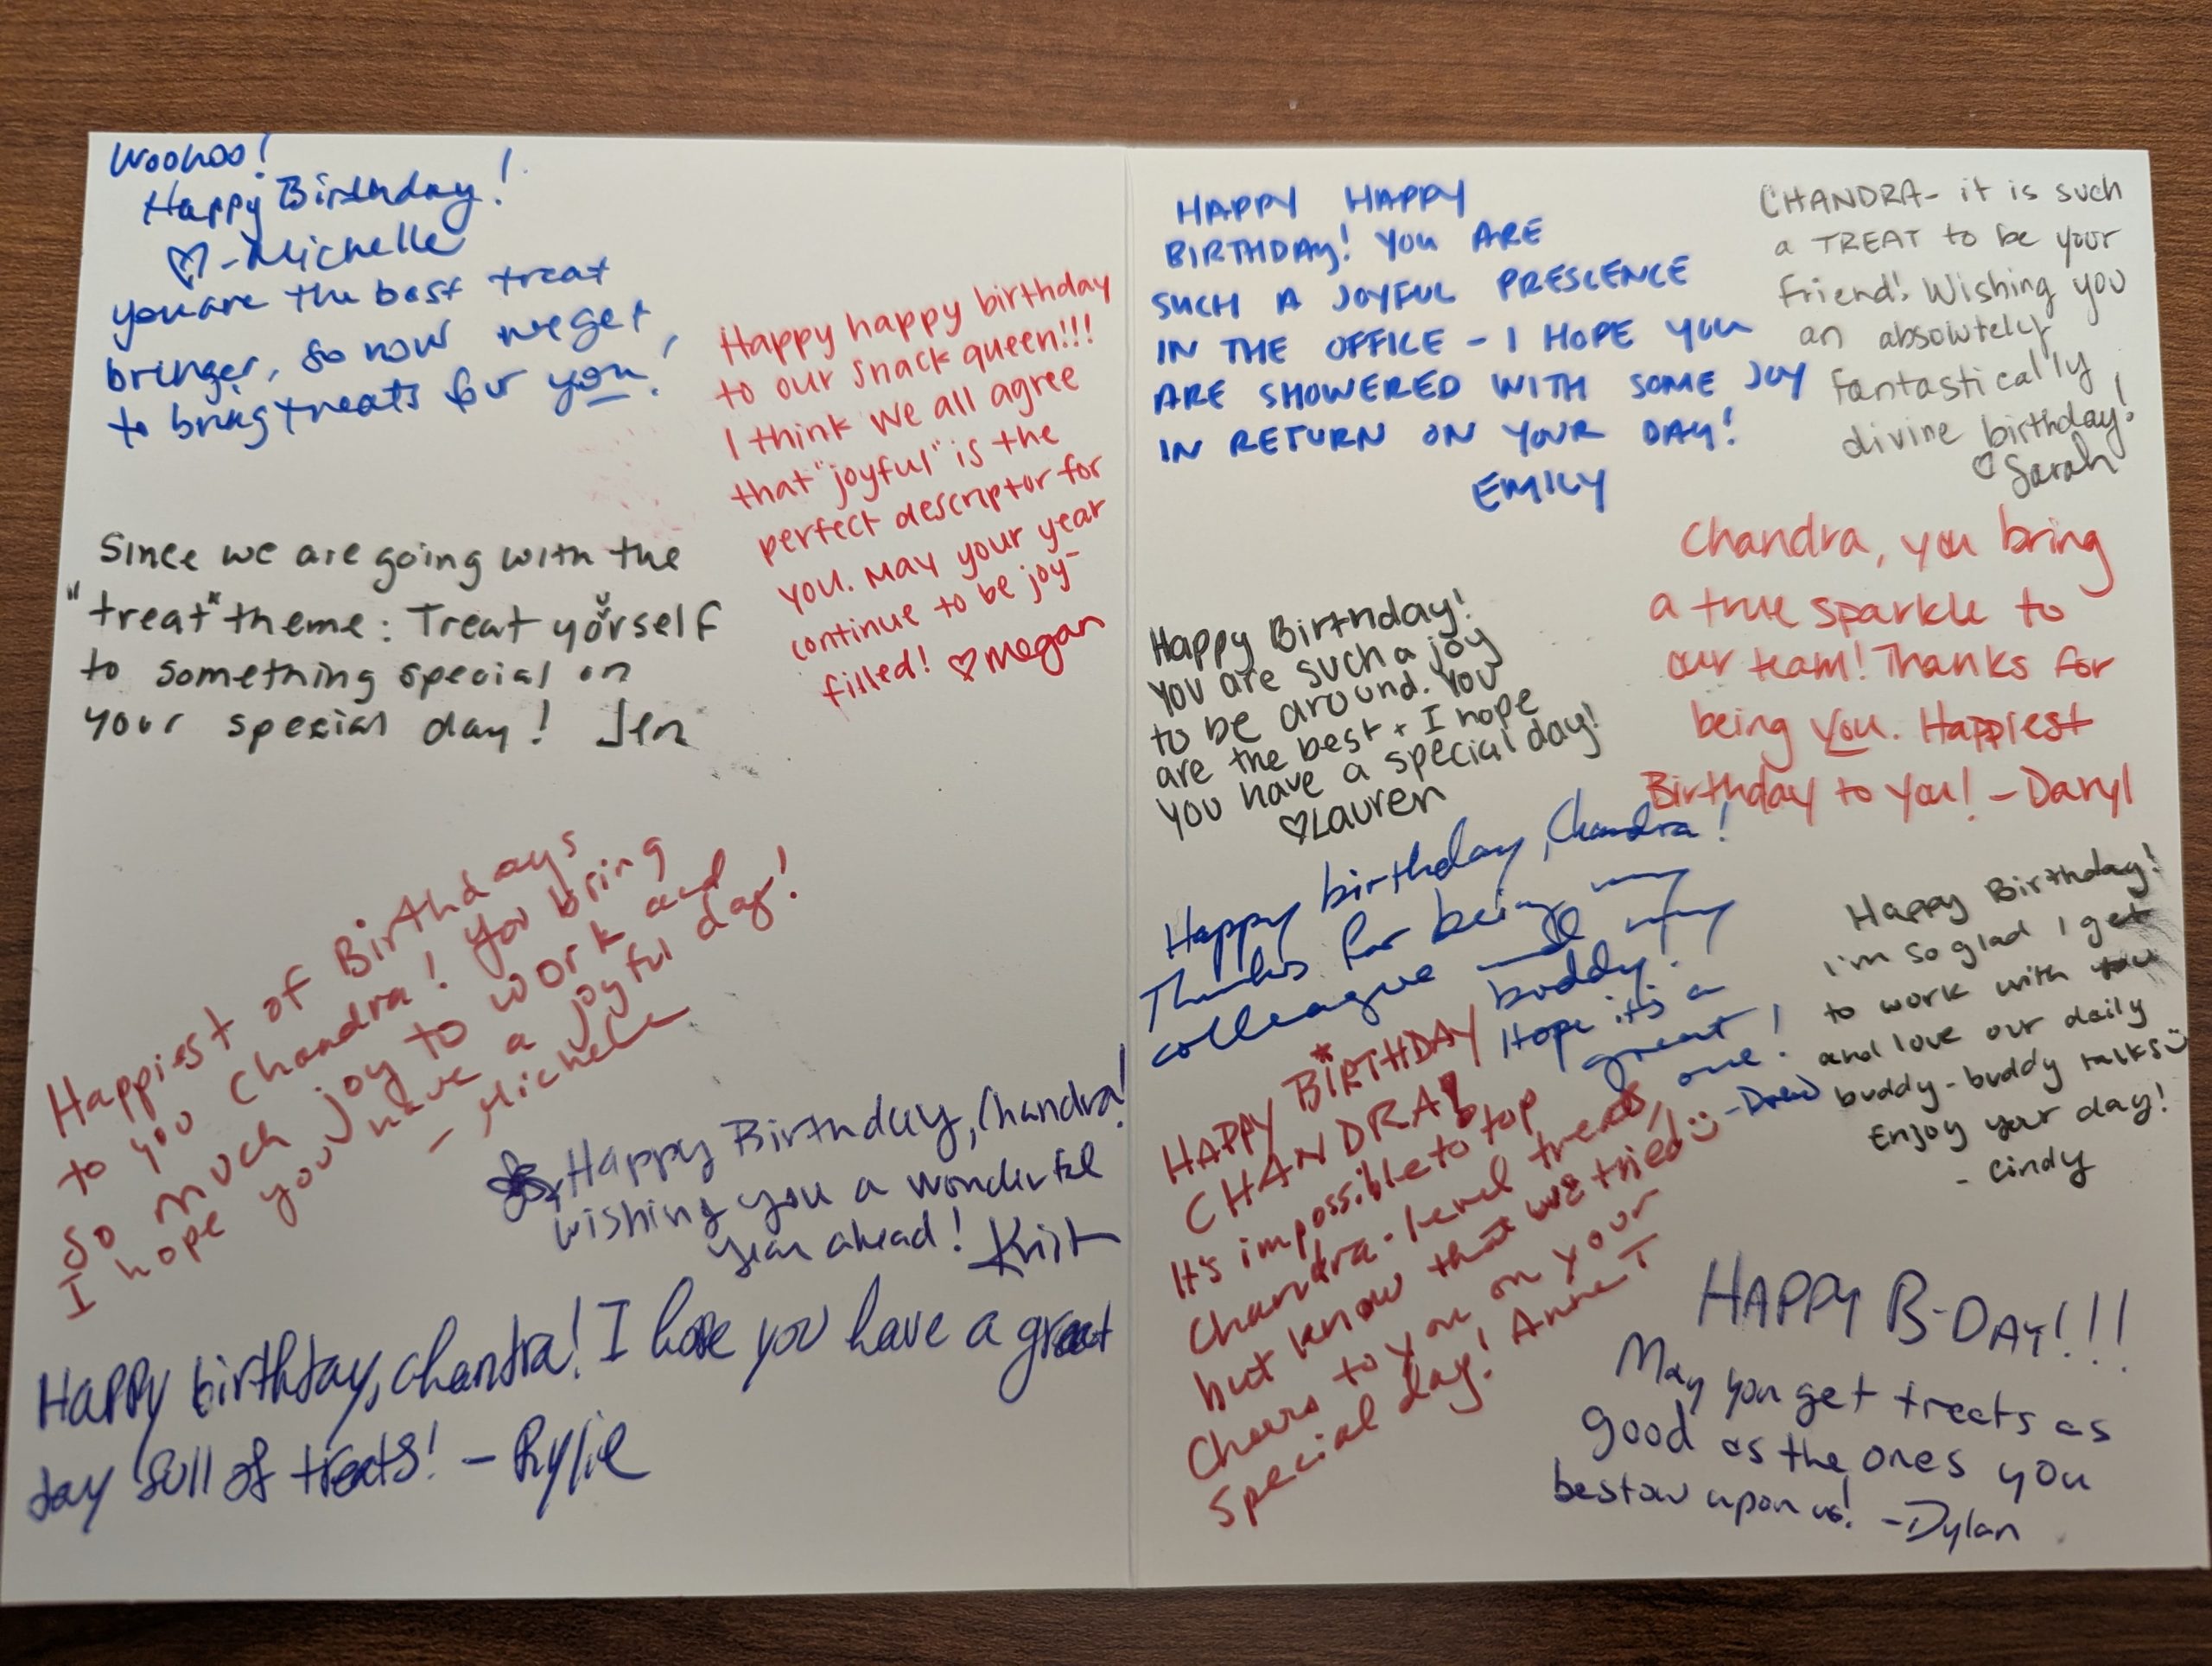 Woohoo!
Happy Birthday!
♡-Michelle
you are the best treat
bringer, so now we get
to bring treats for you!
Happy happy birthday
to our snack queen!!!
I think we all agree
that "joyful" is the
perfect descriptor for
you. May your year
continue to be joy-
filled! ♡Megan
Since we are going with the
"treat" theme: Treat yorself
to something special on
your special day! Jen
Happiest of Birthdays
to you Chandra! You bring
so much joy to work and
I hope you have a joyful day!
- Michele
Happy Birthday, Chandra!
wishing you a wonderful
year ahead!
Happy birthday, Chandra! I hope you have a great
day full of treats! - Rylie
HAPPY HAPPY
BIRTHDAY! YOU ARE
SUCH A JOYFUL PRESCENCE
IN THE OFFICE - I HOPE YOU
ARE SHOWERED WITH SOME JOY
IN RETURN ON YOUR DAY!
EMILY
CHANDRA- it is such
a TREAT to be your
friend! Wishing you
an absolutely
fantastically
divine birthday!
♡ Sarah
Chandra, you bring
a true sparkle to
our team! Thanks for
being you. Happiest
Birthday to you! - Daryl
Happy Birthday!
You are such a joy
to be around. You
are the best + I hope
you have a special day!
♡Lauren
Happy birthday, Chandra!
Thanks for being my
colleague and my
buddy!
Hope it's a
great
one!
-Drew
Happy Birthday!
I'm so glad I get
to work with you
and love our daily
buddy-buddy talks
Enjoy your day!
- Cindy
HAPPY BIRTHDAY
CHANDRA!
It's impossible to top
Chandra-level treats,
but know that we tried
Cheers to you on your
special day! Anne T
HAPPY B-DAY!!!
May you get treats as
good as the ones you
bestow upon us! -Dylan